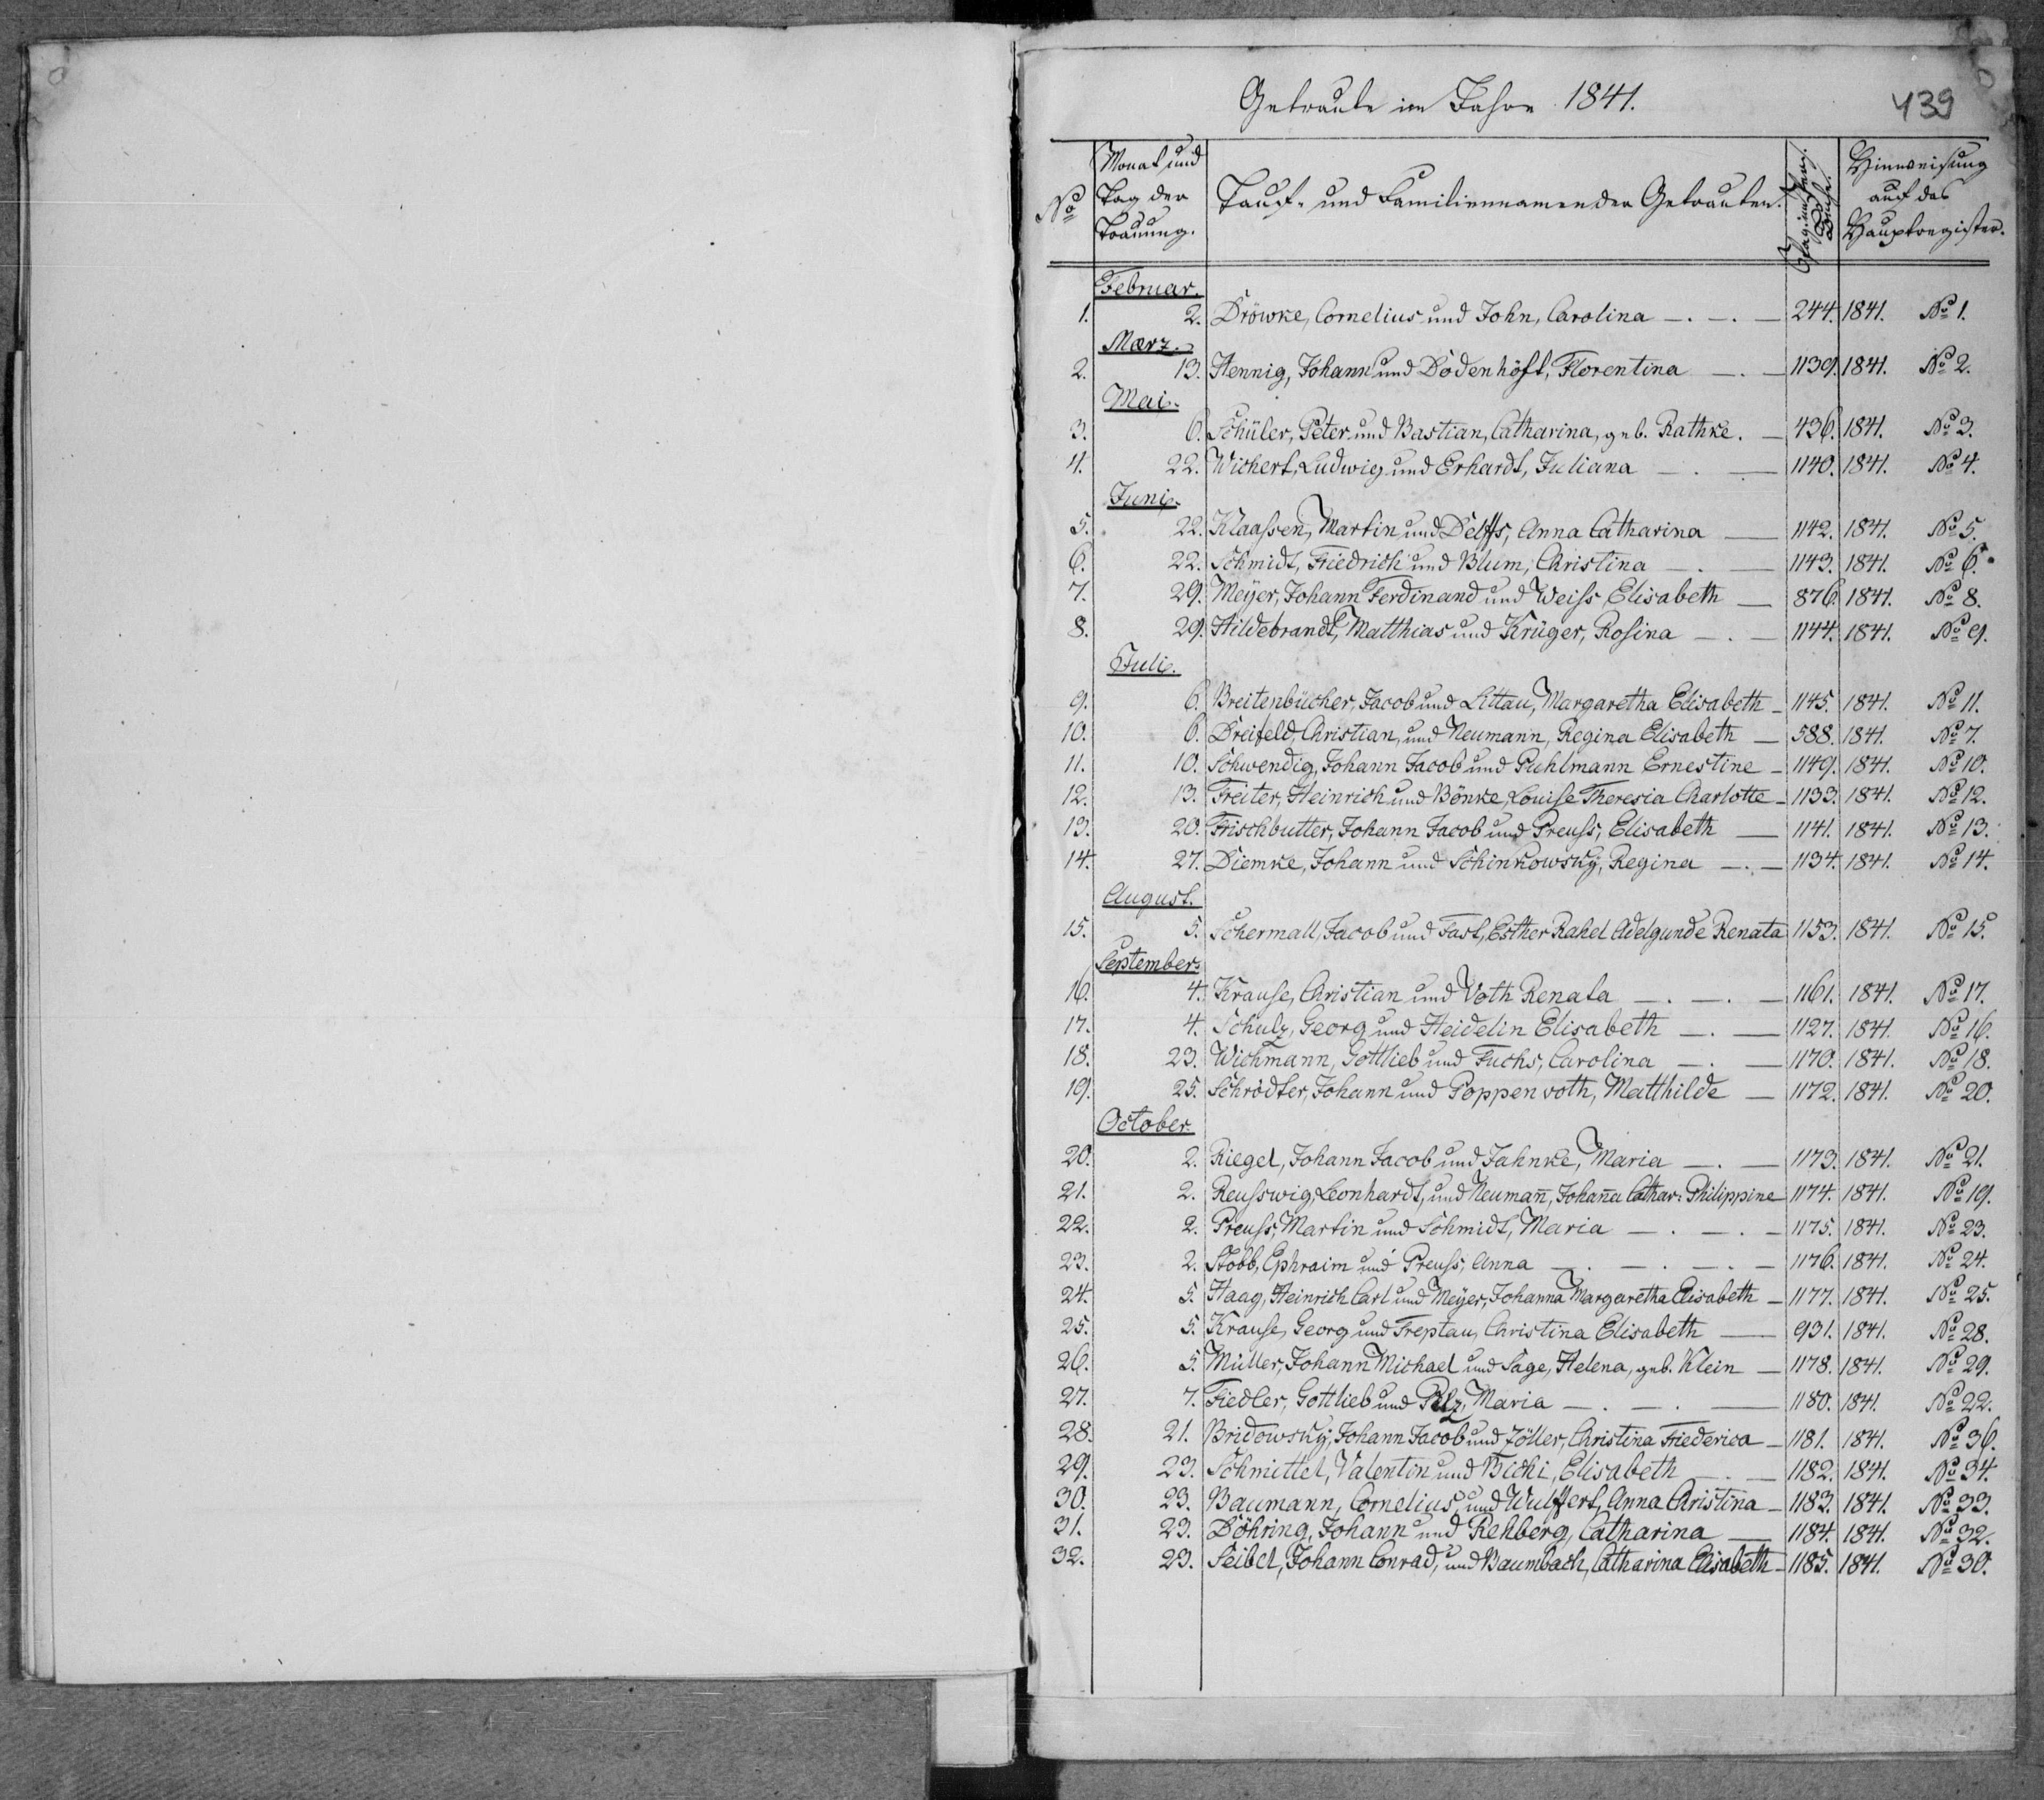 Getraute im Jahre 1841.
439
No
Monat und Tag der Trauung.
Tauf- und Familiennamen der Getrauten.
Pag. im Buche.
Hinweisung auf das Hauptregister.
Februar.
1. 2. Dröwke, Cornelius und John, Carolina 244. 1841. No 1.
Maerz.
2. 13. Hennig, Johann und Dodenhöft, Florentina 1139. 1841. No 2.
Mai.
3. 6. Schüler, Peter und Bastian, Catharina, geb. Rathke. 436. 1841. No 3.
4. 22. Wichert, Ludwig und Erhardt, Juliana 1140. 1841. No 4.
Juni.
5. 22. Klaassen, Martin und Delffs, Anna Catharina 1142. 1841. No 5.
6. 22. Schmidt, Friedrich und Blum, Christina 1143. 1841. No 6.
7. 29. Meÿer, Johann Ferdinand und Weiss Elisabeth 876. 1841. No 8.
8. 29. Hildebrandt, Matthias und Krüger, Rosina 1144. 1841. No 9.
Juli.
9. 6. Breitenbücher, Jacob und Littau, Margaretha Elisabeth 1145. 1841. No 11.
10. 6. Dreifeld, Christian, und Neumann, Regina Elisabeth 588. 1841. No 7.
11. 10. Schwendig, Johann Jacob und Puhlmann Ernestine 1149. 1841. No 10.
12. 13. Freiter, Heinrich und Bönke, Louise Theresia Charlotte 1133. 1841. No 12.
13. 20. Frischbutter, Johann Jacob und Preuss, Elisabeth 1141. 1841. No 13.
14. 27. Diemke, Johann und Schinkowskÿ, Regina 1134. 1841. No 14.
August.
15. 5. Schermall, Jacob und Fast, Esther Rahel Adelgunde Renata 1153. 1841. No 15.
September.
16. 4. Krause, Christian und Voth Renata 1161. 1841. No 17.
17. 4. Schulz, Georg und Heidelin Elisabeth 1127. 1841. No 16.
18. 23. Wichmann, Gottlieb und Fuchs, Carolina 1170. 1841. No 18.
19. 25. Schrödter, Johann und Poppenroth, Matthilde 1172. 1841. No 20.
October.
20. 2. Riegel, Johann Jacob und Jahnke, Maria 1173. 1841. No 21.
21. 2. Reusswig, Leonhardt, und Neumañ, Johaña Cathar: Philippine 1174. 1841. No 19.
22. 2. Preuss, Martin und Schmidt, Maria 1175. 1841. No 23.
23. 2. Stobb, Ephraim und Preuss, Anna 1176. 1841. No 24.
24. 5. Haag, Heinrich Carl und Meÿer, Johanna Margaretha Elisabeth 1177. 1841. No 25.
25. 5. Krause, Georg und Treptau, Christina Elisabeth 931. 1841. No 28.
26. 5. Müller, Johann Michael und Sage, Helena, geb. Klein 1178. 1841. No 29.
27. 7. Fiedler, Gottlieb und Pelz, Maria 1180. 1841. No 22.
28. 21. Bridowskÿ, Johann Jacob und Zöller, Christina Friederica 1181. 1841. No 36.
29. 23. Schmittel, Valentin und Bichi, Elisabeth 1182. 1841. No 34.
30. 23. Baumann, Cornelius, und Wulffert, Anna Christina 1183. 1841. No 33.
31. 23. Döhring, Johann und Rehberg, Catharina 1184. 1841. No 32.
32. 23. Seibel, Johann Conrad, und Baumbach, Catharina Elisabeth 1185. 1841. No 30.